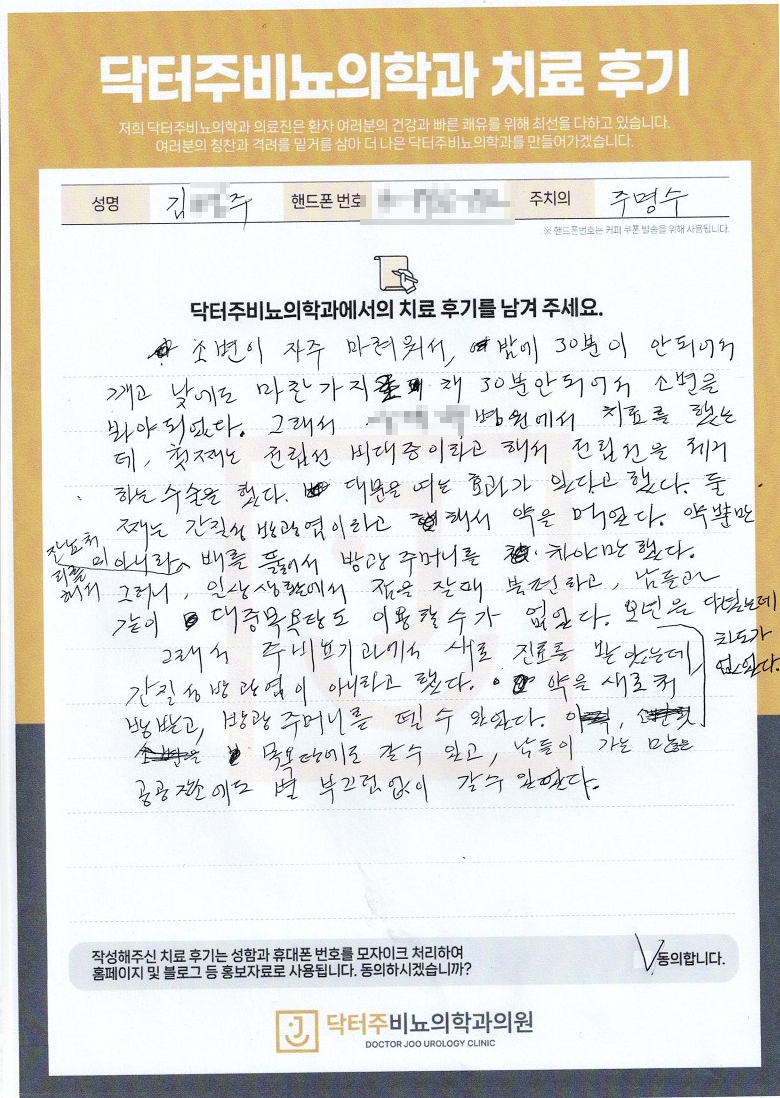 닥터주비뇨의학과 치료 후기
저희 닥터주비뇨의학과 의료진은 환자 여러분의 건강과 빠른 쾌유를 위해 최선을 다하고 있습니다.
여러분의 칭찬과 격려를 밑거름 삼아 더 나은 닥터주비뇨의학과를 만들어가겠습니다.
성명 김 주 핸드폰 번호 주치의 주명수
※ 핸드폰번호는 커피 쿠폰 발송을 위해 사용됩니다.
닥터주비뇨의학과에서의 치료 후기를 남겨 주세요.
소변이 자주 마려워서, 밤에 30분이 안되어서
깨고 낮에도 마찬가지 채 30분안되어서 소변을
봐야 되었다. 그래서 병원에서 치료를 했는
데, 첫째는 전립선 비대증이라고 해서 전립선을 제거
하는 수술을 했다. 대문을 여는 효과가 있다고 했다. 둘
째는 간질성 방광염이라고 해서 약을 먹었다. 약뿐만
아니라 배를 뚫어서 방광 주머니를 차야만 했다.
해서
그러니, 일상생활에서 잠을 잘때 불편하고, 남들과
같이 대중목욕탕도 이용할 수가 없었다. 오년을 다녔는데
차도가
없었다.
그래서 주비뇨기과에서 새로 진료를 받았는데
간질성방광염이 아니라고 했다. 약을 새로 처
방받고, 방광 주머니를 뗄 수 있었다.
목욕탕에도 갈수 있고, 남들이 가는 많은
공공장소에도 별 부끄럼없이 갈수 있었다.
작성해주신 치료 후기는 성함과 휴대폰 번호를 모자이크 처리하여
홈페이지 및 블로그 등 홍보자료로 사용됩니다. 동의하시겠습니까?
동의합니다.
닥터주비뇨의학과의원
DOCTOR JOO UROLOGY CLINIC